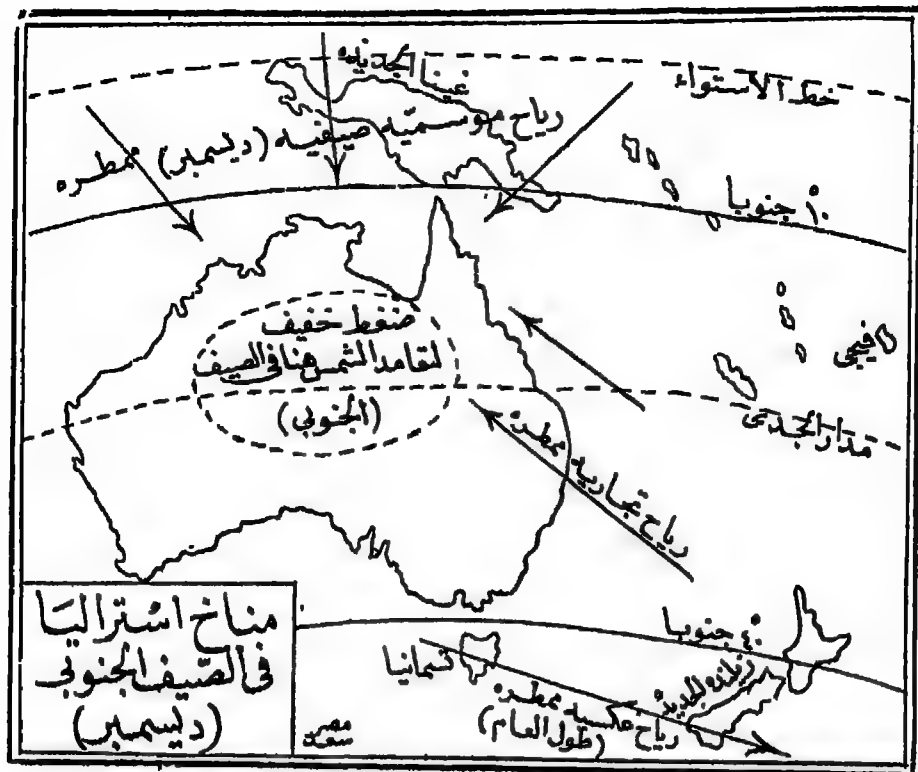 غينيا الجديدة
خط الاستواء
رياح موسمية صيفيه (ديسمبر) ممطره
١٠° جنوبا
ضغط خفيف
لتعامد الشمس هنا فى الصيف
(الجنوبي)
فيجي
مدار الجدى
رياح تجاريه ممطرة
٤٠° جنوبا
تسمانيا
زيلنده الجديدة
رياح عكسيه ممطره
(طول العام)
مناخ استراليا
فى الصيف الجنوبي
(ديسمبر)